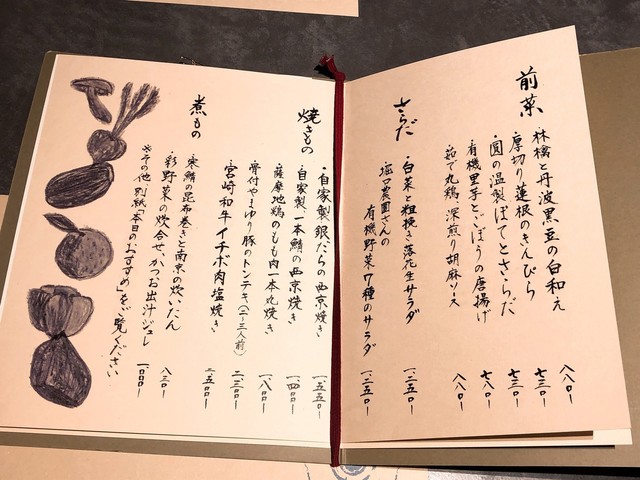 前菜
・林檎と丹波黒豆の白和え 八八〇ー
・厚切り蓮根のきんぴら 七三〇ー
・圓の温製ぽてとさらだ 七三〇ー
・有機里芋とごぼうの唐揚げ 七八〇ー
・茹で丸鶏、深煎り胡麻ソース 八八〇ー
さらだ
・白菜と粗挽き落花生サラダ 一、二五〇ー
・堀口農園さんの
有機野菜7種のサラダ 一、二五〇ー
焼きもの
・自家製銀だらの西京焼き 一、五五〇ー
・自家製一本鯖の西京焼き 一、四〇〇ー
・薩摩地鶏のもも肉一本丸焼き 一、八〇〇ー
・骨付やまゆり豚のトンテキ(二〜三人前) 二、三〇〇ー
・宮崎和牛イチボ肉塩焼き 二、五〇〇ー
煮もの
・寒鯖の昆布巻きと南京の炊いたん 八三〇ー
・彩野菜の炊合せ、かつお出汁ジュレ 一、〇〇〇ー
※その他、別紙「本日のおすすめ」をご覧ください